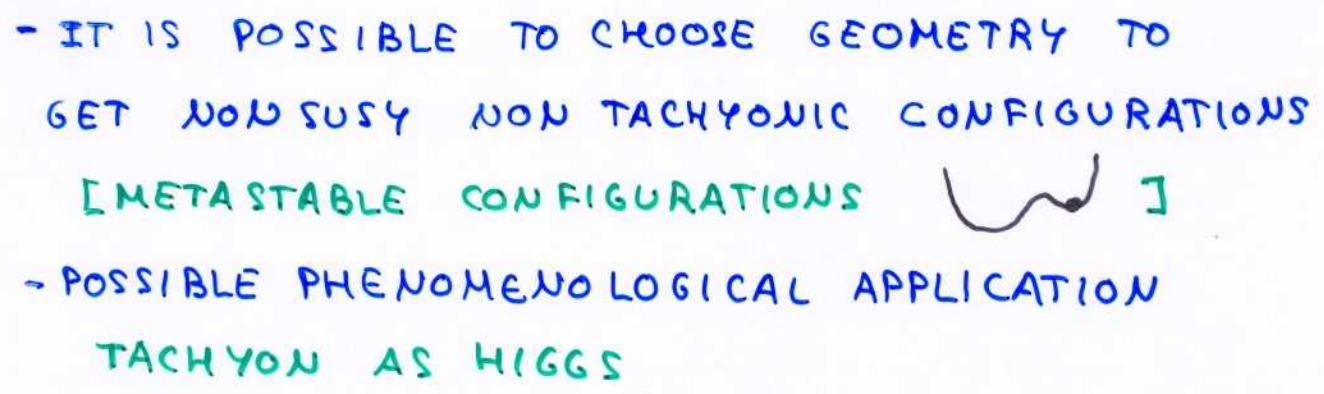 - IT IS POSSIBLE TO CHOOSE GEOMETRY TO
GET NON SUSY NON TACHYONIC CONFIGURATIONS
[METASTABLE CONFIGURATIONS ]
- POSSIBLE PHENOMENOLOGICAL APPLICATION
TACHYON AS HIGGS